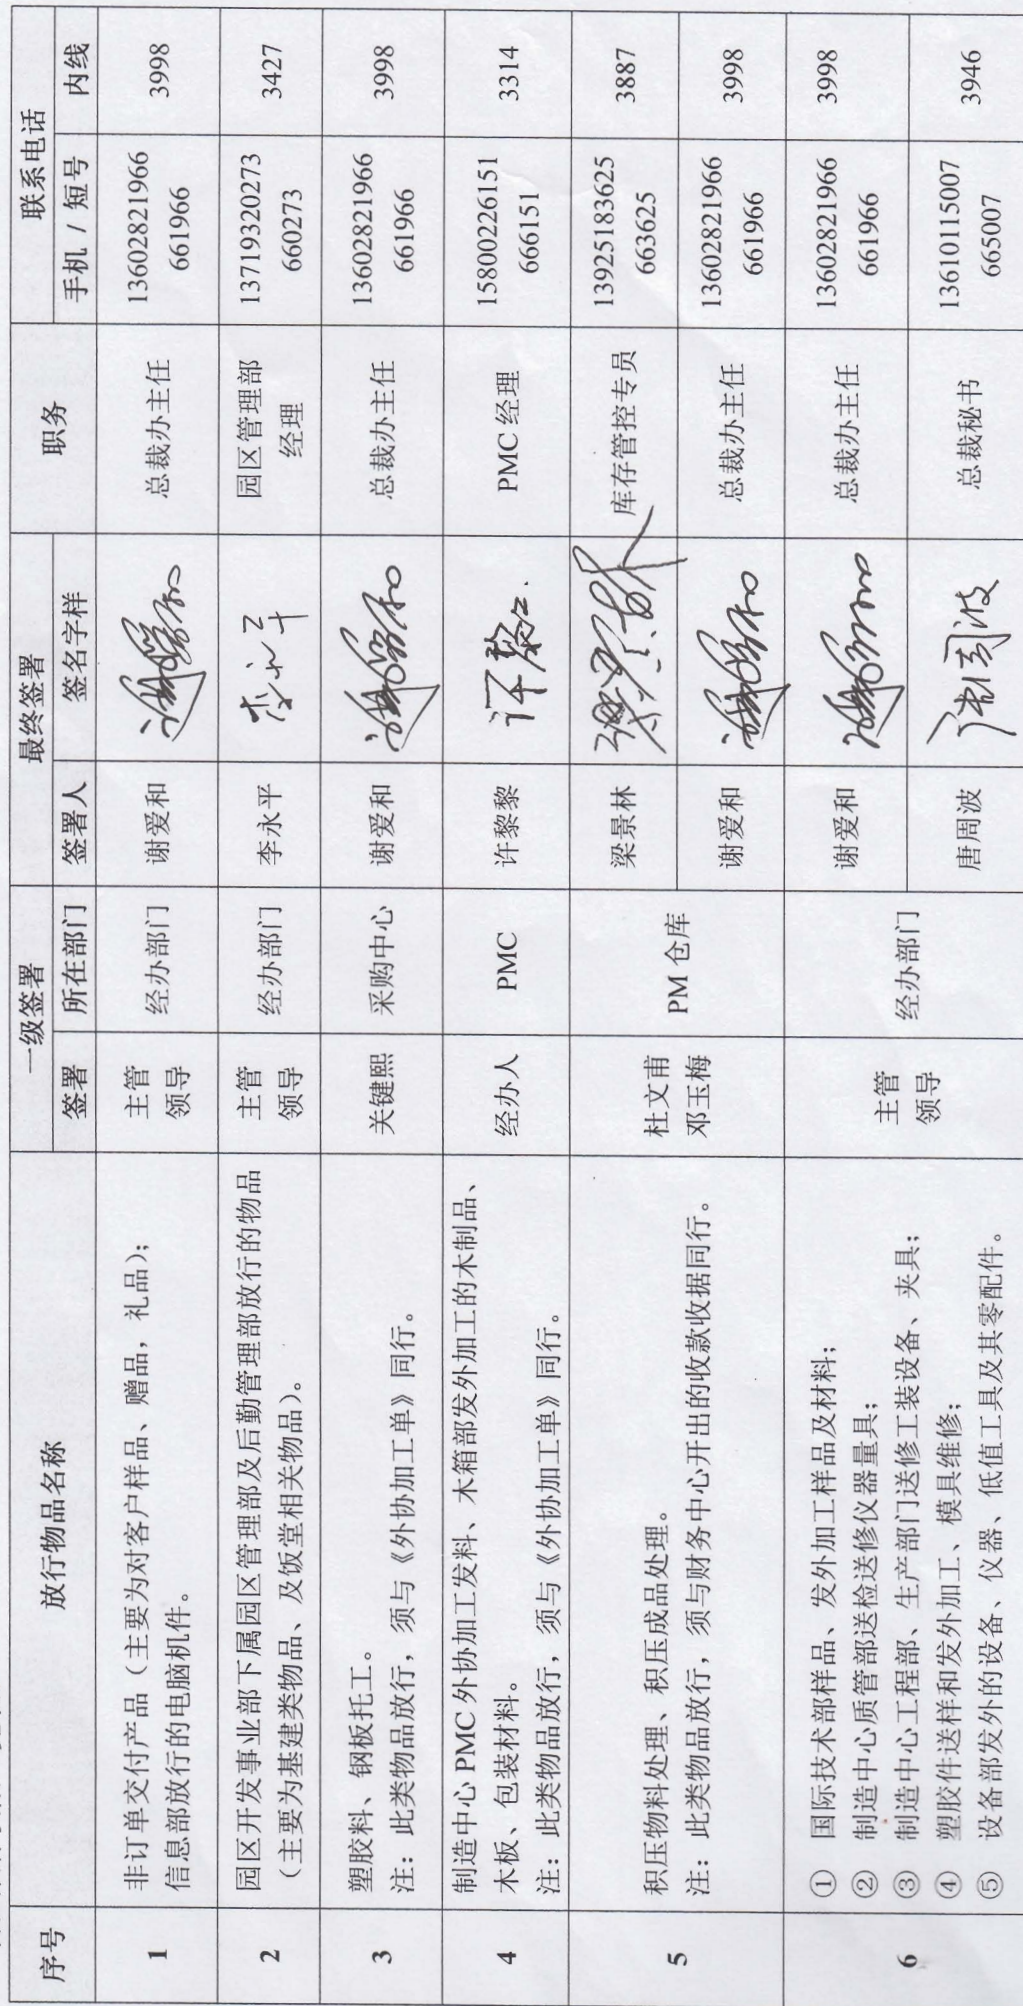 序号
放行物品名称
一级签署
最终签署
职务
联系电话
签署
所在部门
签署人
签名字样
手机 / 短号
内线
1
非订单交付产品（主要为对客户样品、赠品，礼品）；
信息部放行的电脑机件。
主管
领导
经办部门
谢爱和
总裁办主任
13602821966
661966
3998
2
园区开发事业部下属园区管理部及后勤管理部放行的物品
（主要为基建类物品、及饭堂相关物品）。
主管
领导
经办部门
李永平
李永平
园区管理部
经理
13719320273
660273
3427
3
塑胶料、钢板托工。
注：此类物品放行，须与《外协加工单》同行。
关键熙
采购中心
谢爱和
总裁办主任
13602821966
661966
3998
4
制造中心 PMC 外协加工发料、木箱部发外加工的木制品、
木板、包装材料。
注：此类物品放行，须与《外协加工单》同行。
经办人
PMC
许黎黎
PMC 经理
15800226151
666151
3314
5
积压物料处理、积压成品处理。
注：此类物品放行，须与财务中心开出的收款收据同行。
杜文甫
邓玉梅
PM 仓库
梁景林
库存管控专员
13925183625
663625
3887
谢爱和
总裁办主任
13602821966
661966
3998
6
① 国际技术部样品、发外加工样品及材料；
② 制造中心质管部送检送修仪器量具；
③ 制造中心工程部、生产部门送修工装设备、夹具；
④ 塑胶件送样和发外加工、模具维修；
⑤ 设备部发外的设备、仪器、低值工具及其零配件。
主管
领导
经办部门
谢爱和
总裁办主任
13602821966
661966
3998
唐周波
唐周波
总裁秘书
13610115007
665007
3946